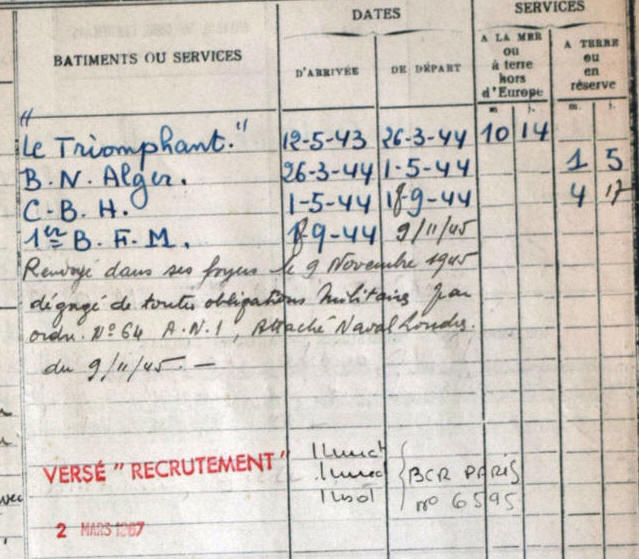 DATES
SERVICES
BATIMENTS OU SERVICES
D'ARRIVÉE
DE DÉPART
A LA MER
ou
à terre
hors
d'Europe
A TERRE
ou
en
réserve
m. j. m. j.
"Le Triomphant." 12-5-43 26-3-44 10 14
B.N. Alger. 26-3-44 1-5-44 1 5
C.B.H. 1-5-44 18-9-44 4 17
1er B.F.M. 18-9-44 9/11/45
Renvoyé dans ses foyers le 9 Novembre 1945
dégagé de toutes obligations militaires par
ordre N° 64 A.N.1, Attaché Naval Londres.
du 9/11/45. —
VERSÉ "RECRUTEMENT"
BCR PARIS
n° 6595
2 MARS 1967